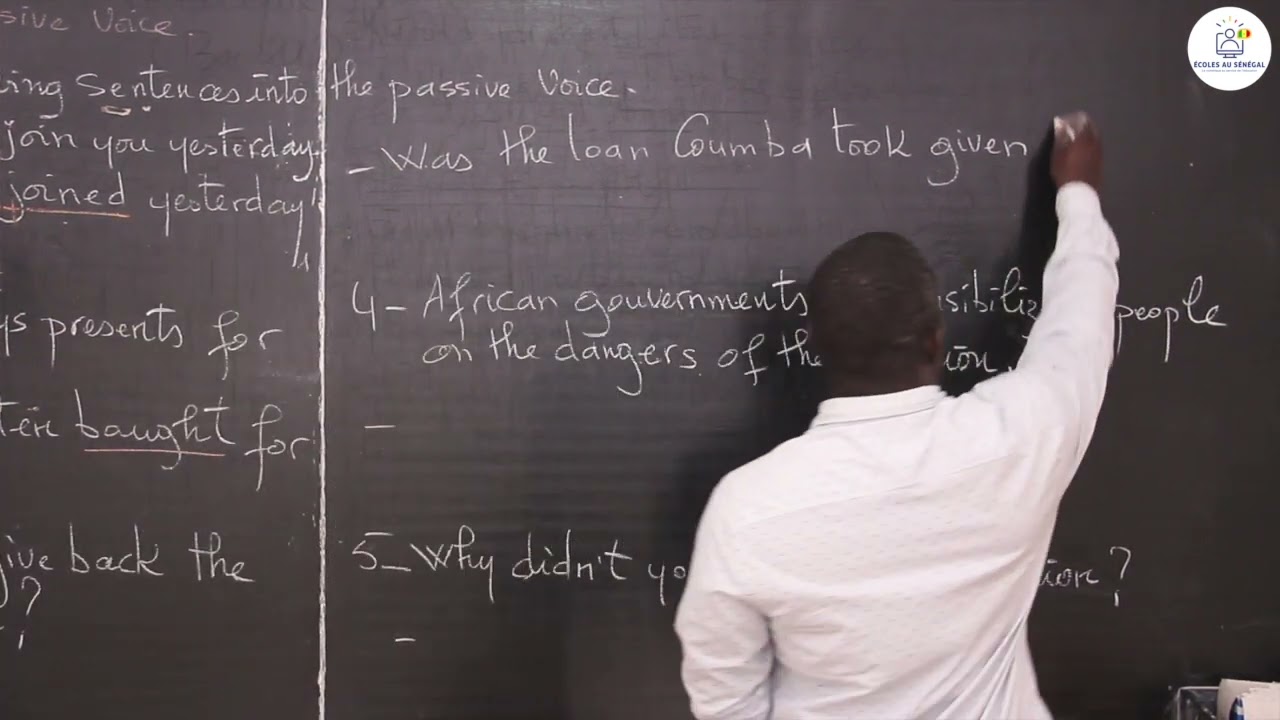 sive Voice.
ing Sentences into the passive Voice.
join you yesterday.
joined yesterday
ys presents for
bought for
ive back the
?
- Was the loan Coumba took given
4- African gouvernments people
on the dangers of the
-
5- Why didn't ?
-
ÉCOLES AU SÉNÉGAL